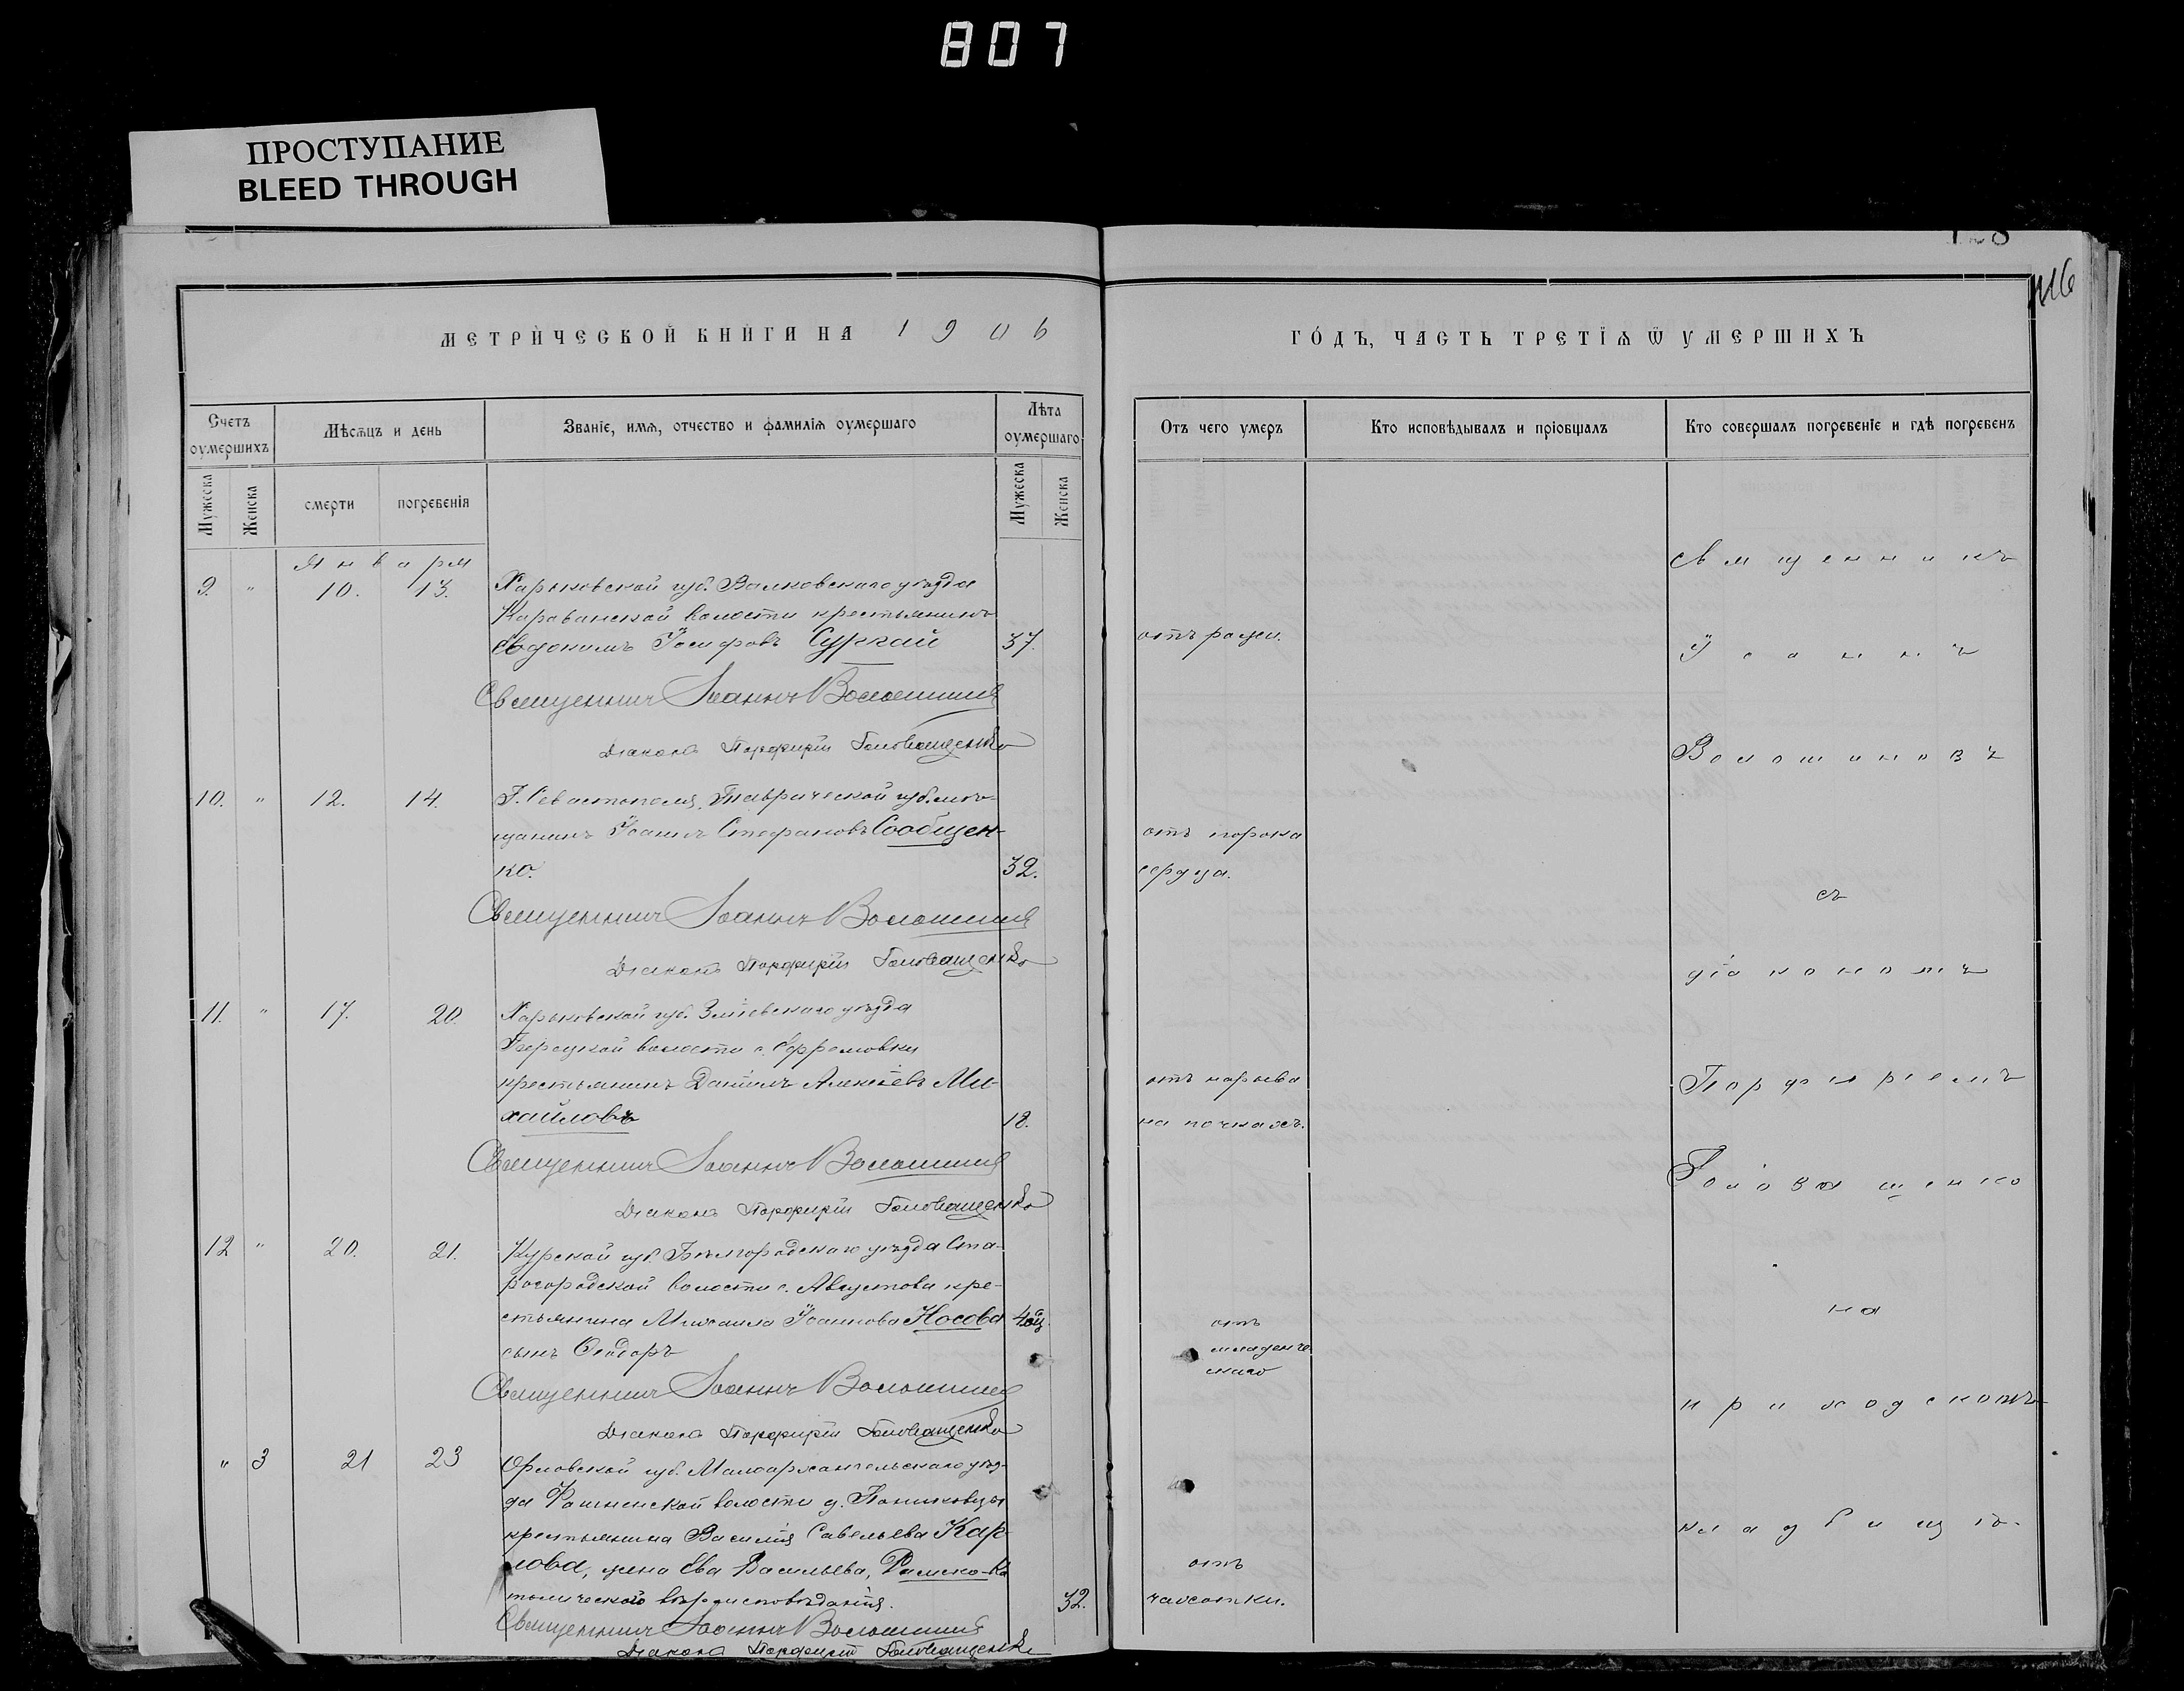 807
ПРОСТУПАНИЕ
BLEED THROUGH
116
МЕТРИЧЕСКОЙ КНИГИ НА 1906
ГОДЪ, ЧАСТЬ ТРЕТІѦ Ѿ УМЕРШИХЪ
Счетъ оумершихъ
Мѣсѧцъ и день
Званіе, имѧ, отчество и фамиліѧ оумершаго
Лѣта оумершаго
Отъ чего умеръ
Кто исповѣдывалъ и пріобщалъ
Кто совершалъ погребеніе и гдѣ погребенъ
Мужеска
Женска
смерти
погребенія
Мужеска
Женска
Января
9. " 10. 13. Харьковской губ. Валковскаго уѣзда
Караванской волости крестьянинъ
Евдокимъ Іосифовъ Суркай 37. отъ рожи.
Священникъ Іоаннъ Волошиновъ
Діаконъ Порфирій Головащенко
10. " 12. 14. Г. Севастополя, Таврической губ. мѣ-
щанинъ Іоаннъ Стефановъ Сообщен-
ко. 32. отъ порока
сердца.
Священникъ Іоаннъ Волошиновъ
Діаконъ Порфирій Головащенко
11. " 17. 20. Харьковской губ. Зміевскаго уѣзда
волости с. Ефремовки
крестьянинъ Даніилъ Алексѣевъ Ми-
хайловъ 18. отъ нарыва
на почкахъ.
Священникъ Іоаннъ Волошиновъ
Діаконъ Порфирій Головащенко
12 " 20. 21. Курской губ. Бѣлгородскаго уѣзда Ста-
рогородской волости с. Августова кре-
стьянина Михаила Іоаннова Носова
сынъ Ѳеодоръ
отъ
младенче
скаго
Священникъ Іоаннъ Волошиновъ
Діаконъ Порфирій Головащенко
" 3 21 23 Орловской губ. Малоархангельскаго уѣз-
да волости д.
крестьянина Василія Савельева Кар-
лова, жена Ева Васильева, Римско-Ка
толическаго вѣроисповѣданія. 32.
отъ
чахотки.
Священникъ Іоаннъ Волошиновъ
Діаконъ Порфирій Головащенко
Священникъ
Іоаннъ
Волошиновъ
съ
діакономъ
Порфиріемъ
Головащенко
на
приходскомъ
кладбищѣ.